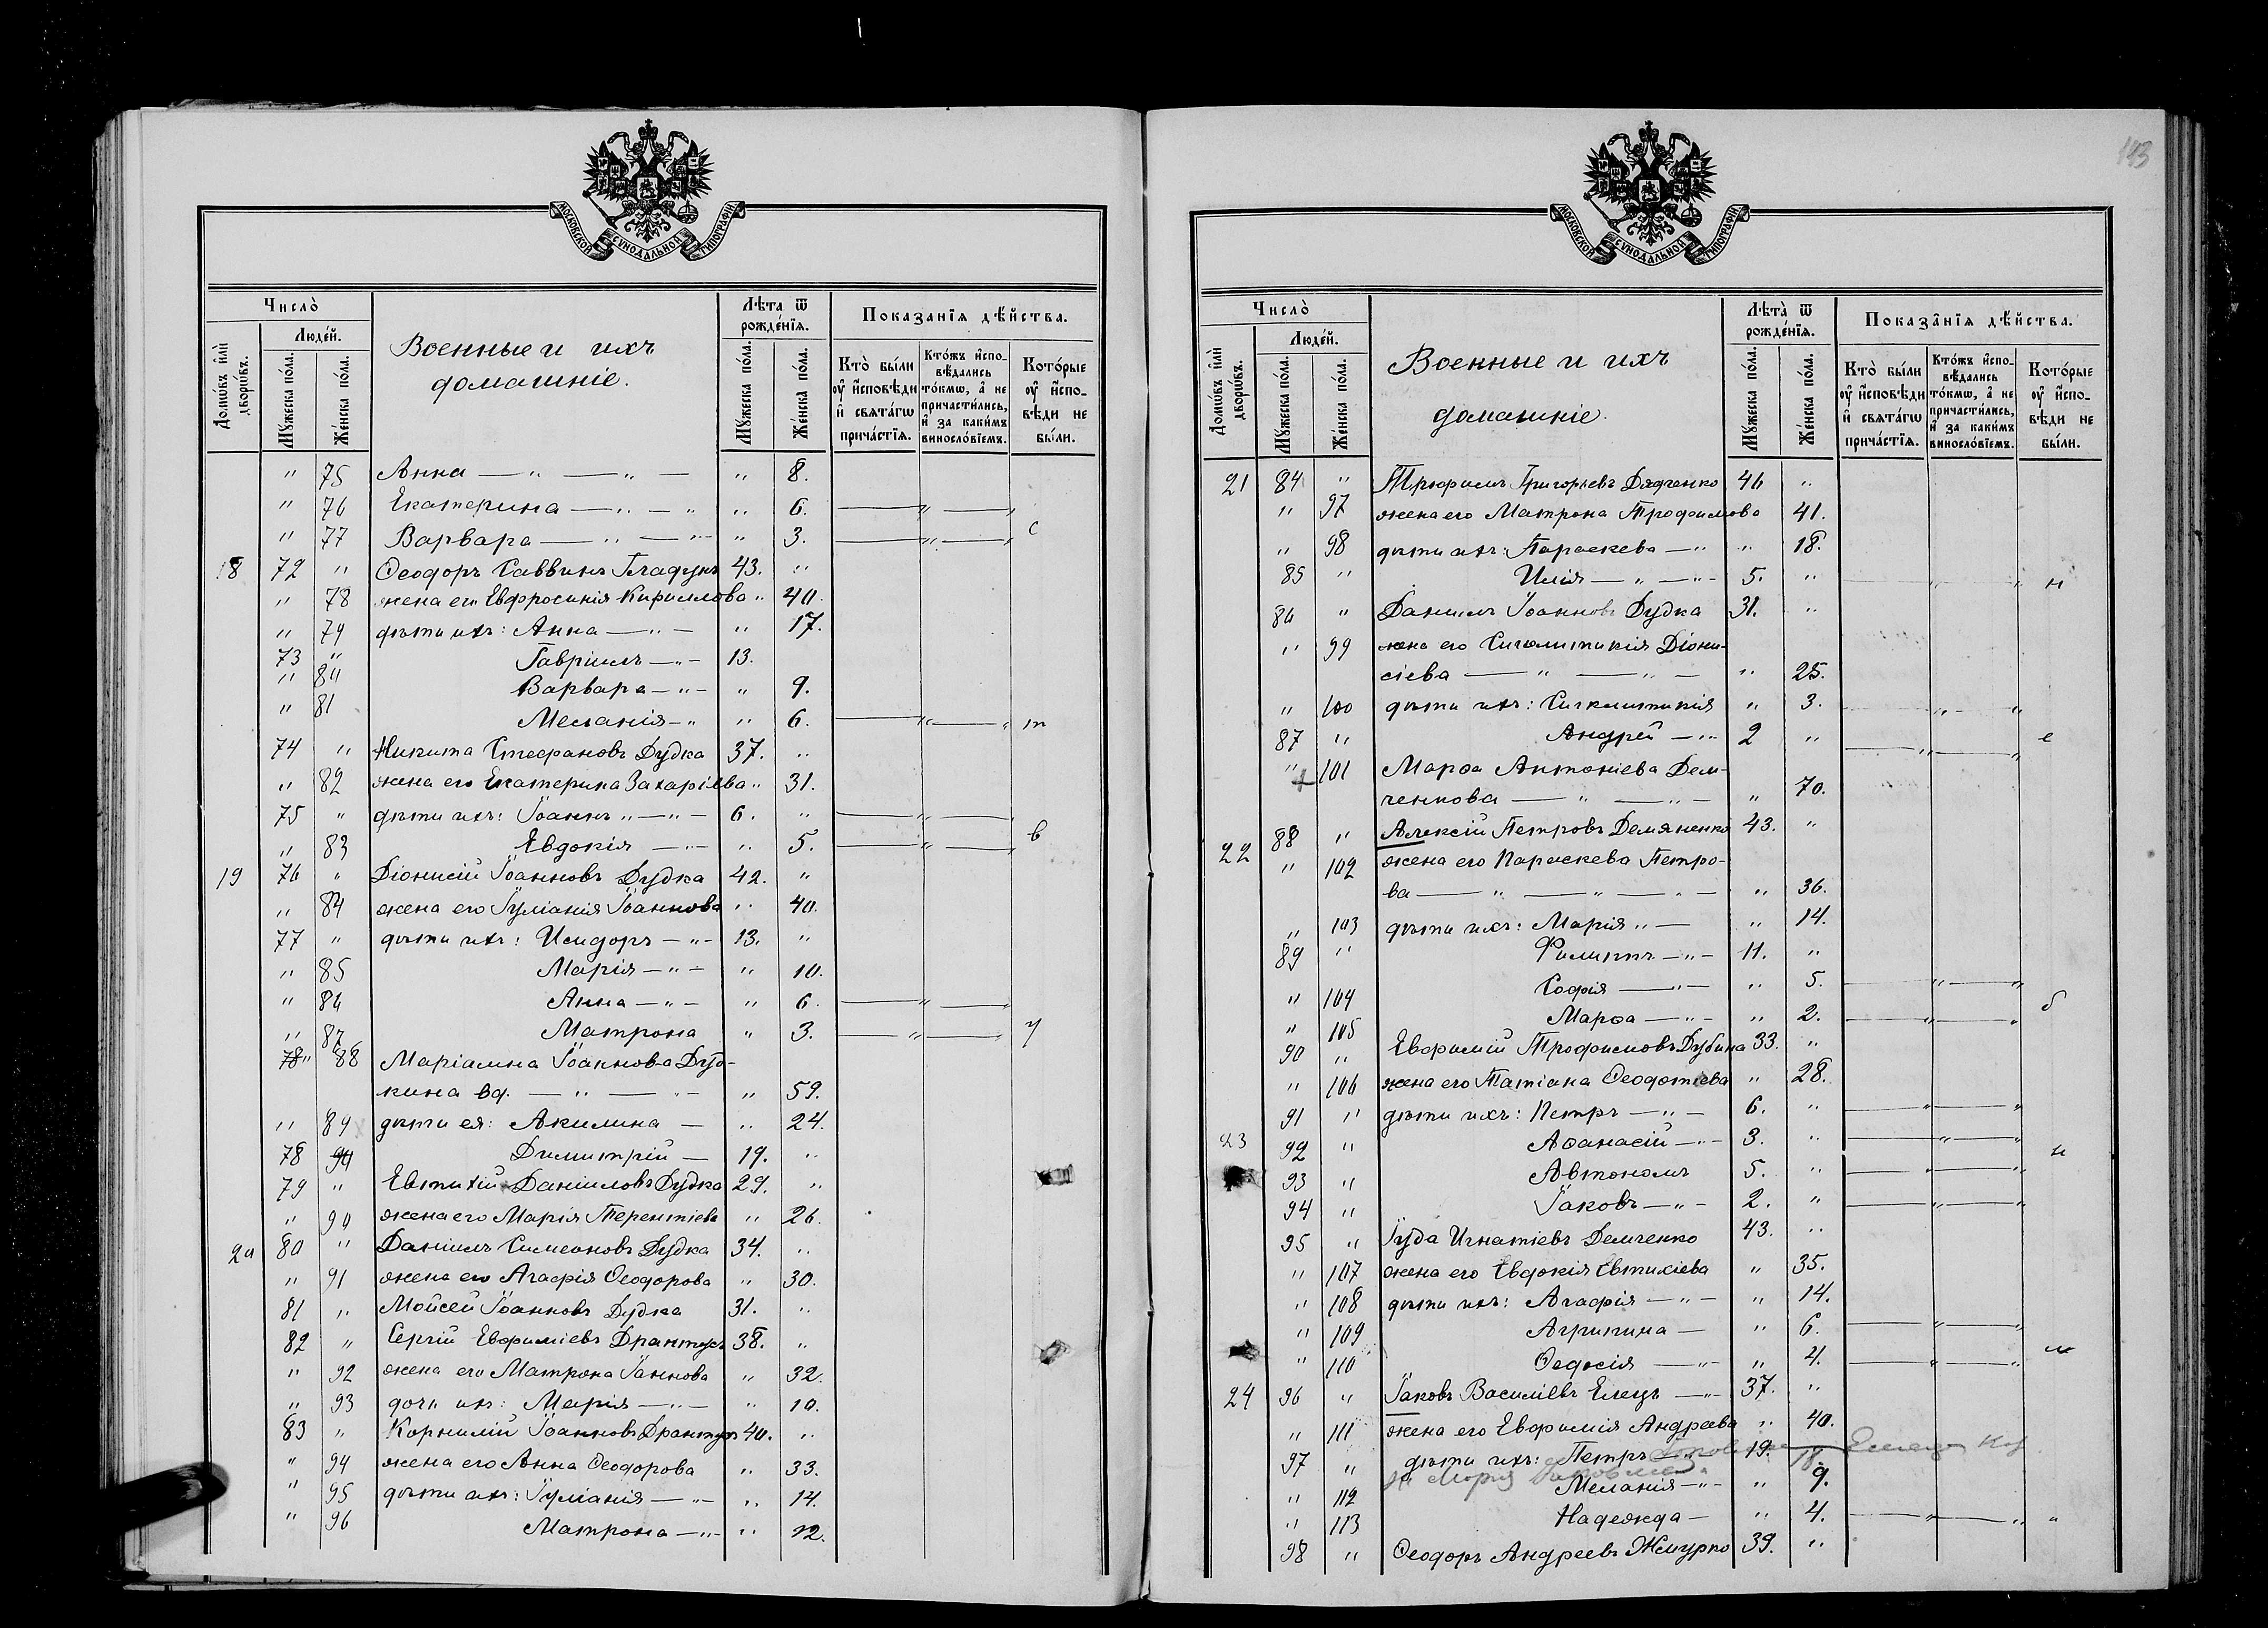 143
МОСКОВСКОЙ СѴНОДАЛЬНОЙ ТИПОГРАФІИ.
Число̀
Домѡ́въ и҆лѝ дворѡ́въ.
Люде́й.
Мꙋ́жеска по́ла.
Же́нска по́ла.
Военные и ихъ
домашніе.
Лѣ́та ѿ рожде́нїѧ.
Мꙋ́жеска по́ла.
Же́нска по́ла.
Показа́нїѧ дѣ́йства.
Кто̀ бы́ли ᲂу҆ и҆сповѣ́ди и҆ свѧта́гѡ прича́стїѧ.
Кто́жъ и҆сповѣ́дались то́кмѡ, а҆ не причасти́лись, и҆ за каки́мъ винослові́емъ.
Кото́рые ᲂу҆ и҆сповѣ́ди не бы́ли.
" 75 Анна — " — " — " 8.
" 76 Екатерина — " — " " 6. — " — "
" 77 Варвара — " — " — " 3. — " — " с
18 72 " Ѳеодоръ Саввинъ Гладунъ 43. "
" 78 жена его Евфросинія Кириллова " 40.
" 79 дѣти ихъ: Анна — " — " 17.
73 " Гавріилъ — " — 13.
" 80 Варвара — " — " 9.
" 81 Меланія — " " 6. — " — " т
74 " Никита Стефановъ Дудка 37. "
" 82 жена его Екатерина Захаріева " 31.
75 " дѣти ихъ: Іоаннъ " — " — 6. " — " —
" 83 Евдокія — " — " 5. — " — " в
19 76 " Діонисій Іоанновъ Дудка 42. "
" 84 жена его Іуліанія Іоаннова " 40.
77 " дѣти ихъ: Исидоръ — " — 13. "
" 85 Марія — " — " 10.
" 86 Анна — " — " 6. — " — "
" 87 Матрона " 3. — " — " у
78 " 88 Маріамна Іоаннова Дуд-
кина вд. — " — " — " 59.
" 89 дѣти ея: Акилина — " 24.
78 90 Димитрій — 19. "
79 " Евтихій Даніиловъ Дудка 29. "
" 90 жена его Марія Терентіева " 26.
20 80 " Даніилъ Симеоновъ Дудка 34. "
" 91 жена его Агафія Ѳеодорова " 30.
81 " Мойсей Іоанновъ Дудка 31. "
82 " Сергій Евфиміевъ Драптухъ 38. "
" 92 жена его Матрона Іаннова " 32.
" 93 дочь ихъ: Марія — " — " 10.
83 " Корнилій Іоанновъ Драптухъ 40. "
" 94 жена его Анна Ѳеодорова " 33.
" 95 дѣти ихъ: Іуліанія — " — " 14.
" 96 Матрона — " — " 12.
МОСКОВСКОЙ СѴНОДАЛЬНОЙ ТИПОГРАФІИ.
Число̀
Домѡ́въ и҆лѝ дворѡ́въ.
Люде́й.
Мꙋ́жеска по́ла.
Же́нска по́ла.
Военные и ихъ
домашніе.
Лѣ́та ѿ рожде́нїѧ.
Мꙋ́жеска по́ла.
Же́нска по́ла.
Показа́нїѧ дѣ́йства.
Кто̀ бы́ли ᲂу҆ и҆сповѣ́ди и҆ свѧта́гѡ прича́стїѧ.
Кто́жъ и҆сповѣ́дались то́кмѡ, а҆ не причасти́лись, и҆ за каки́мъ винослові́емъ.
Кото́рые ᲂу҆ и҆сповѣ́ди не бы́ли.
21 84 " Трофимъ Григорьевъ Дядченко 46 "
" 97 жена его Матрона Трофимова 41.
" 98 дѣти ихъ: Параскева — " " 18.
85 " Илія — " — " — 5. " — " — " н
86 " Даниилъ Іоанновъ Дудка 31. "
" 99 жена его Сигклитикія Діони-
сіева — " — " — " 25.
" 100 дѣти ихъ: Сигклитикія " 3. — " — "
87 " Андрей — " 2 " — " — " е
" 101 Марѳа Антоніева Дем-
ченкова — " — " — " 70.
22 88 " Алексій Петровъ Демяненко 43. "
" 102 жена его Параскева Петро-
ва — " — " — " — " 36.
" 103 дѣти ихъ: Марія " — " 14.
89 " Филиппъ — " — 11. "
" 104 Софія — " — " 5. — " — "
" 105 Марѳа — " — " 2. — " — " б
90 " Евфимій Трофимовъ Дубина 33. "
" 106 жена его Татіана Ѳеодотіева " 28.
91 " дѣти ихъ: Петръ — " — 6. " — " — "
23 92 " Аѳанасій — " — 3. " — " — "
93 " Автономъ 5. " — " — " и
94 " Іаковъ — " — 2. " — " — "
95 " Іуда Игнатіевъ Демченко 43. "
" 107 жена его Евдокія Евтихіева " 35.
" 108 дѣти ихъ: Агафія — " — " 14.
" 109 Агрипина — " 6. — " — "
" 110 Ѳедосія — " — " 4. — " — "
24 96 " Іаковъ Василіевъ Елецъ — " — 37. "
" 111 жена его Евфимія Андреева " 40.
97 " дѣти ихъ: Петръ 19.
18.
" 112 Меланія — " — " 9.
" 113 Надежда — " 4. — " — " "
98 " Ѳеодоръ Андреевъ Жмурко 39. "